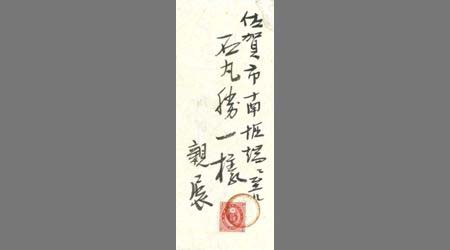 佐賀市南堀端
石丸勝一様
親展